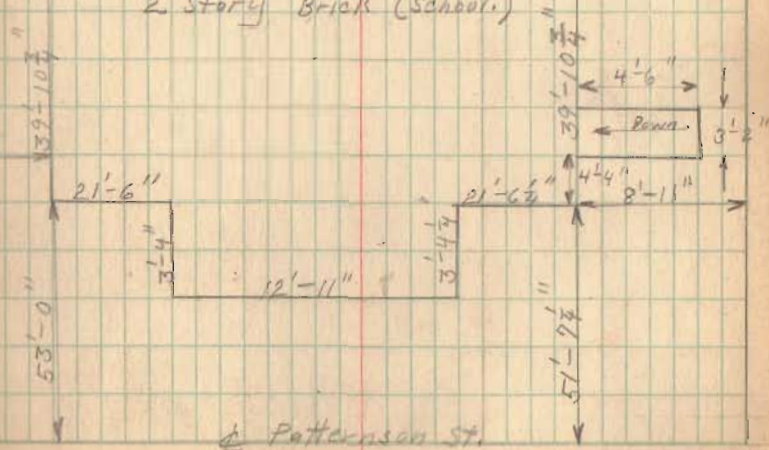 2 Story Brick (School.)
39'-10 3/4"
39'-10 3/4"
4'-6"
Down
3'-2"
4'-4"
21'-6"
21'-6 1/4"
8'-11"
3'-4"
3'-4 1/4"
12'-11"
53'-0"
51'-7 1/4"
℄ Patternson St.